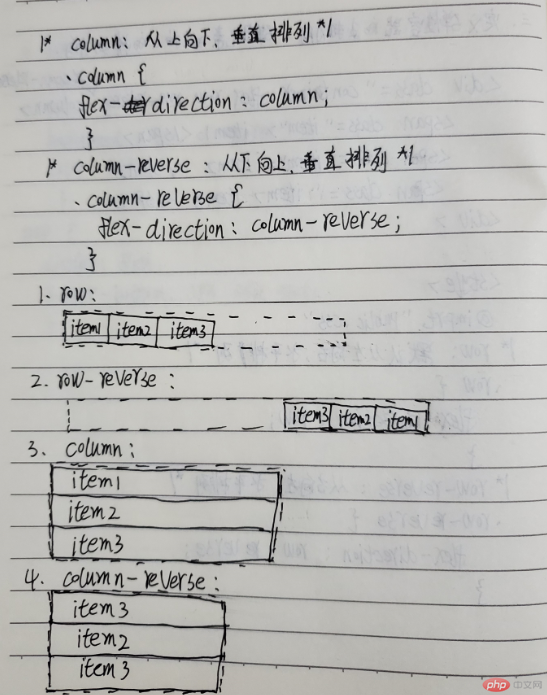 /* column: 从上向下、垂直排列 */
.column {
flex-direction: column;
}
/* column-reverse: 从下向上、垂直排列 */
.column-reverse {
flex-direction: column-reverse;
}
1. row:
item1 item2 item3
2. row-reverse:
item3 item2 item1
3. column:
item1
item2
item3
4. column-reverse:
item3
item2
item3
php 中文网